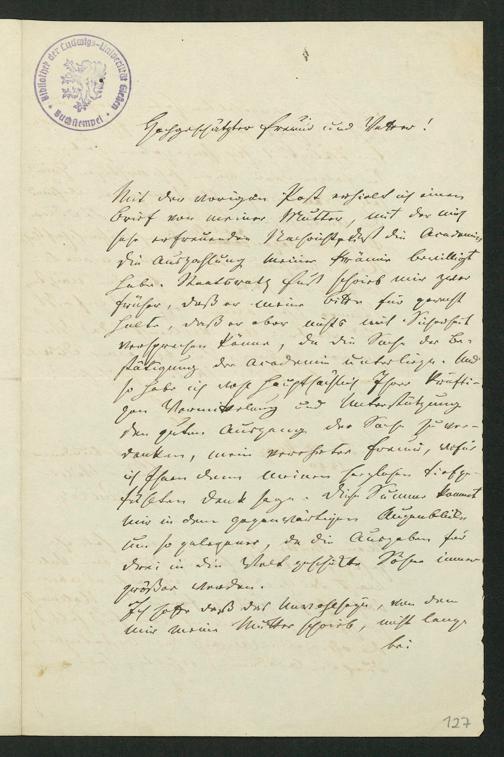 Bibliothek der Ludwigs-Universität Giessen
Buchstempel
Hochgeschätzter Freund und Vetter!
Mit der vorigen Post erhielt ich einen
Brief von meiner Mutter, mit der mich
sehr erfreuenden Nachricht, daß die Academie
die Auszahlung meiner Prämie bewilligt
habe. Staatsrath Fuß schrieb mir zwar
früher, daß er meine Bitte für gerecht
halte, daß er aber nichts mit Sicherheit
versprechen könne, da die Sache der Be-
stätigung der Academie unterliege. Und
so habe ich wohl hauptsächlich Ihrer kräfti-
gen Vermittelung und Unterstützung
den guten Ausgang der Sache zu ver-
danken, mein verehrter Freund, wofür
ich Ihnen denn meinen herzlichen tiefge-
fühlten Dank sage. Diese Summe kommt
mir in dem gegenwärtigen Augenblicke
um so gelegener, da die Ausgaben für
drei in die Welt geschickte Söhne immer
größer werden.
Ich hoffe daß das Unwohlseyn, von dem
mir meine Mutter schrieb, nicht lange
bei
127